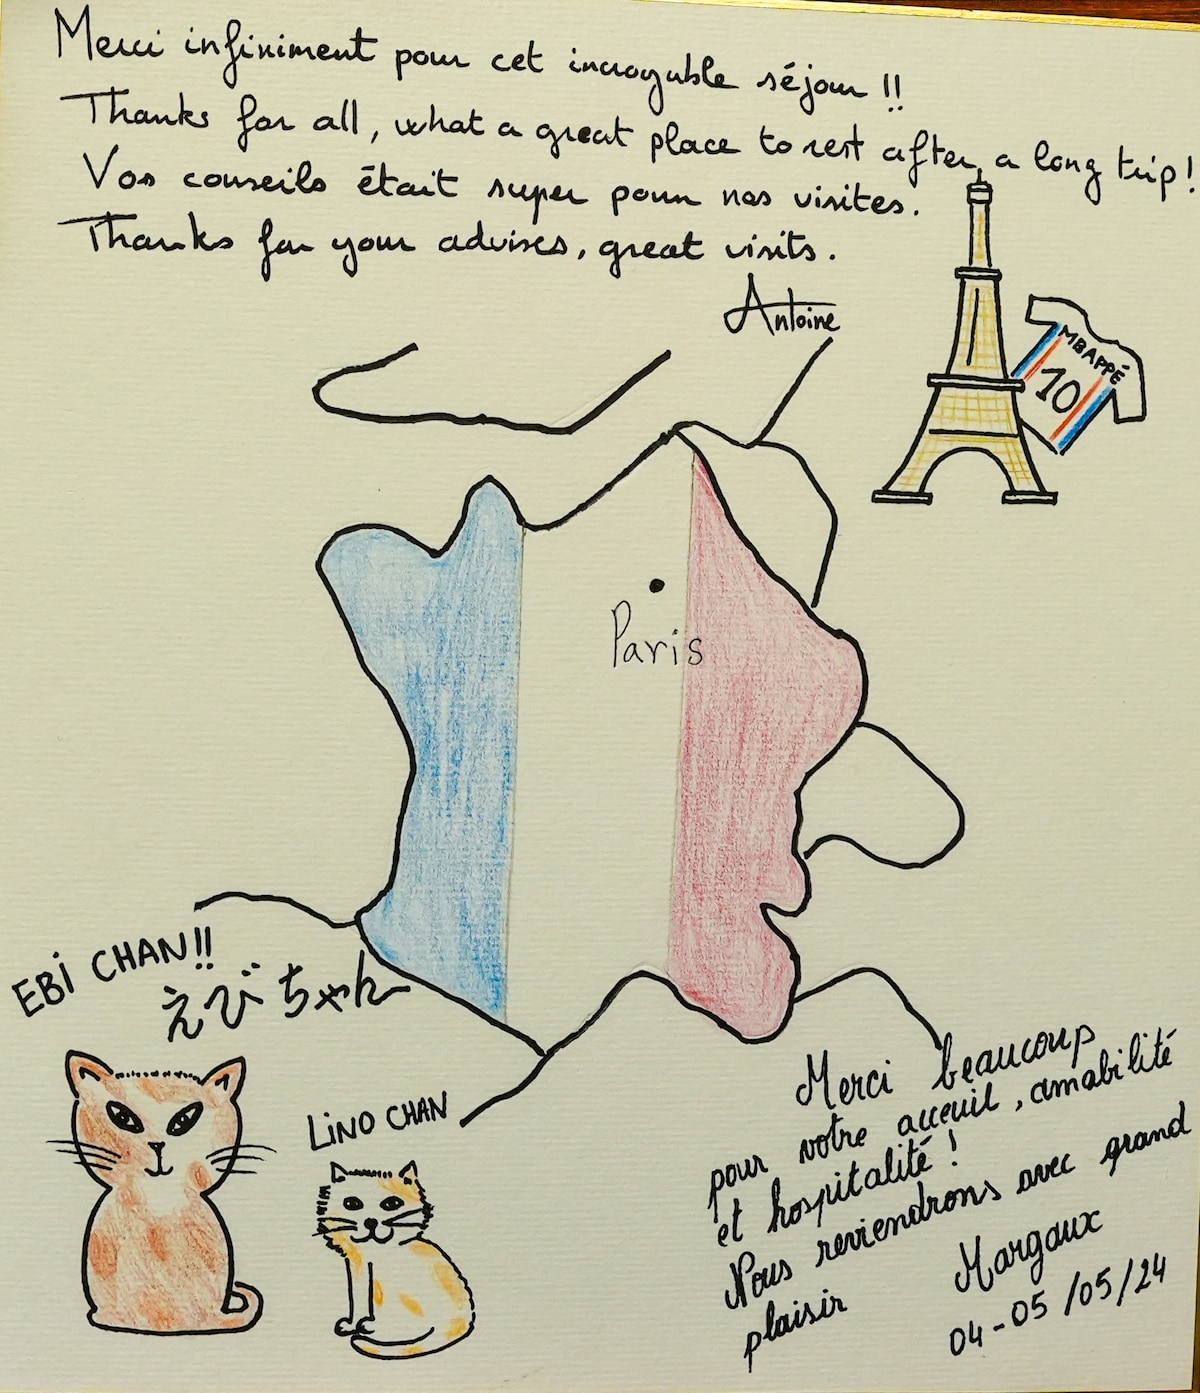 Merci infiniment pour cet incroyable séjour !!
Thanks for all, what a great place to rest after a long trip !
Vos conseils était super pour nos visites.
Thanks for your advises, great visits.
Antoine
MBAPPÉ
10
Paris
EBI CHAN!!
えび ちゃん
LINO CHAN
Merci beaucoup
pour votre acceuil, amabilité
et hospitalité !
Nous reviendrons avec grand
plaisir
Margaux
04-05/05/24